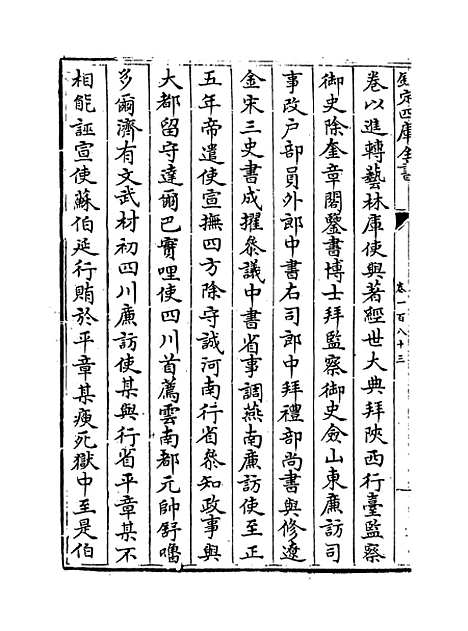 欽定四庫全書
卷一百八十三
卷以進轉藝林庫使與著經世大典拜陝西行臺監察
御史除奎章閣鑒書博士拜監察御史僉山東廉訪司
事改戶部員外郎中書右司郎中拜禮部尚書與修遼
金宋三史書成擢叅議中書省事調燕南廉訪使至正
五年帝遣使宣撫四方除守誠河南行省叅知政事與
大都留守達爾巴實哩使四川首薦雲南都元帥舒嚕
多爾濟有文武材初四川廉訪使某與行省平章某不
相能誣宣使蘇伯延行賄於平章某瘐死獄中至是伯